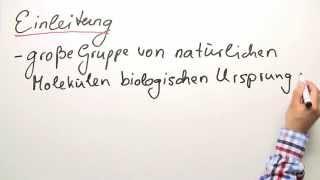 Einleitung
- große Gruppe von natürlichen
Molekülen biologischen Ursprung